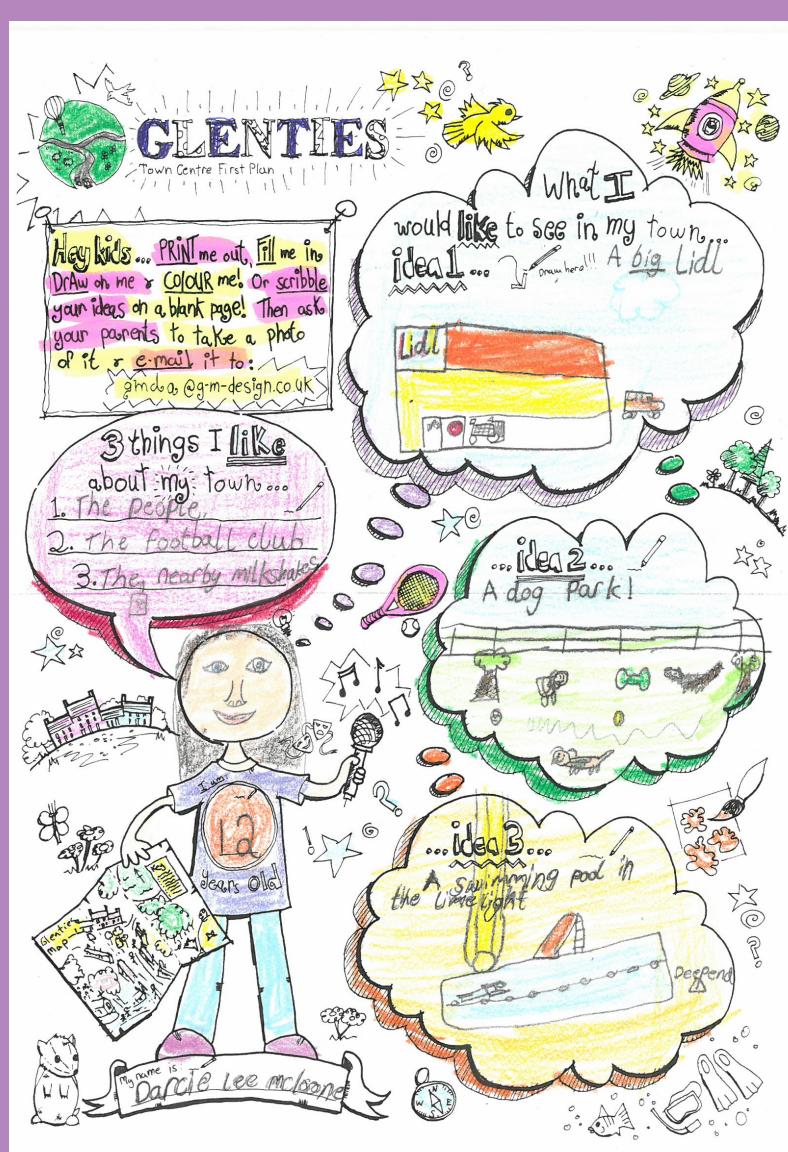 GLENTIES
Town Centre First Plan
Hey kids... PRINT me out, Fill me in
DrAw on me & COLOUR me! Or scribble
your ideas on a blank page! Then ask
your parents to take a photo
of it & e-mail it to:
What I
would like to see in my town...
idea 1...
Draw here!!!
A big Lidl
Lidl
3 things I like
about my town...
1. The people,
2. The football club
3. The nearby milkshakes
...idea 2...
A dog Park!
I am
12
years Old
Glenties
Map
...idea 3...
A swimming pool in
the limelight
Deepend
My name is:
Darcie Lee mcloone
N
E
S
W